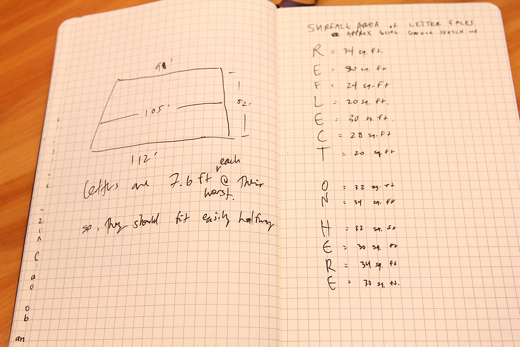 105'
52'
112'
each
Letters are 7.6 ft @ Their
worst.
so, they should fit easily halfway
SURFACE AREA of LETTER FACES
APPROX USING GOOGLE SKETCH UP
R = 34 sq. ft.
E = 30 sq. ft
F = 24 sq. ft
L = 20 sq. ft.
E = 30 sq. ft.
C = 28 sq. ft.
T = 20 sq ft
O = 32 sq. ft
N = 34 sq. ft.
H = 32 sq. ft
E = 30 sq. ft
R = 34 sq. ft
E = 30 sq. ft.